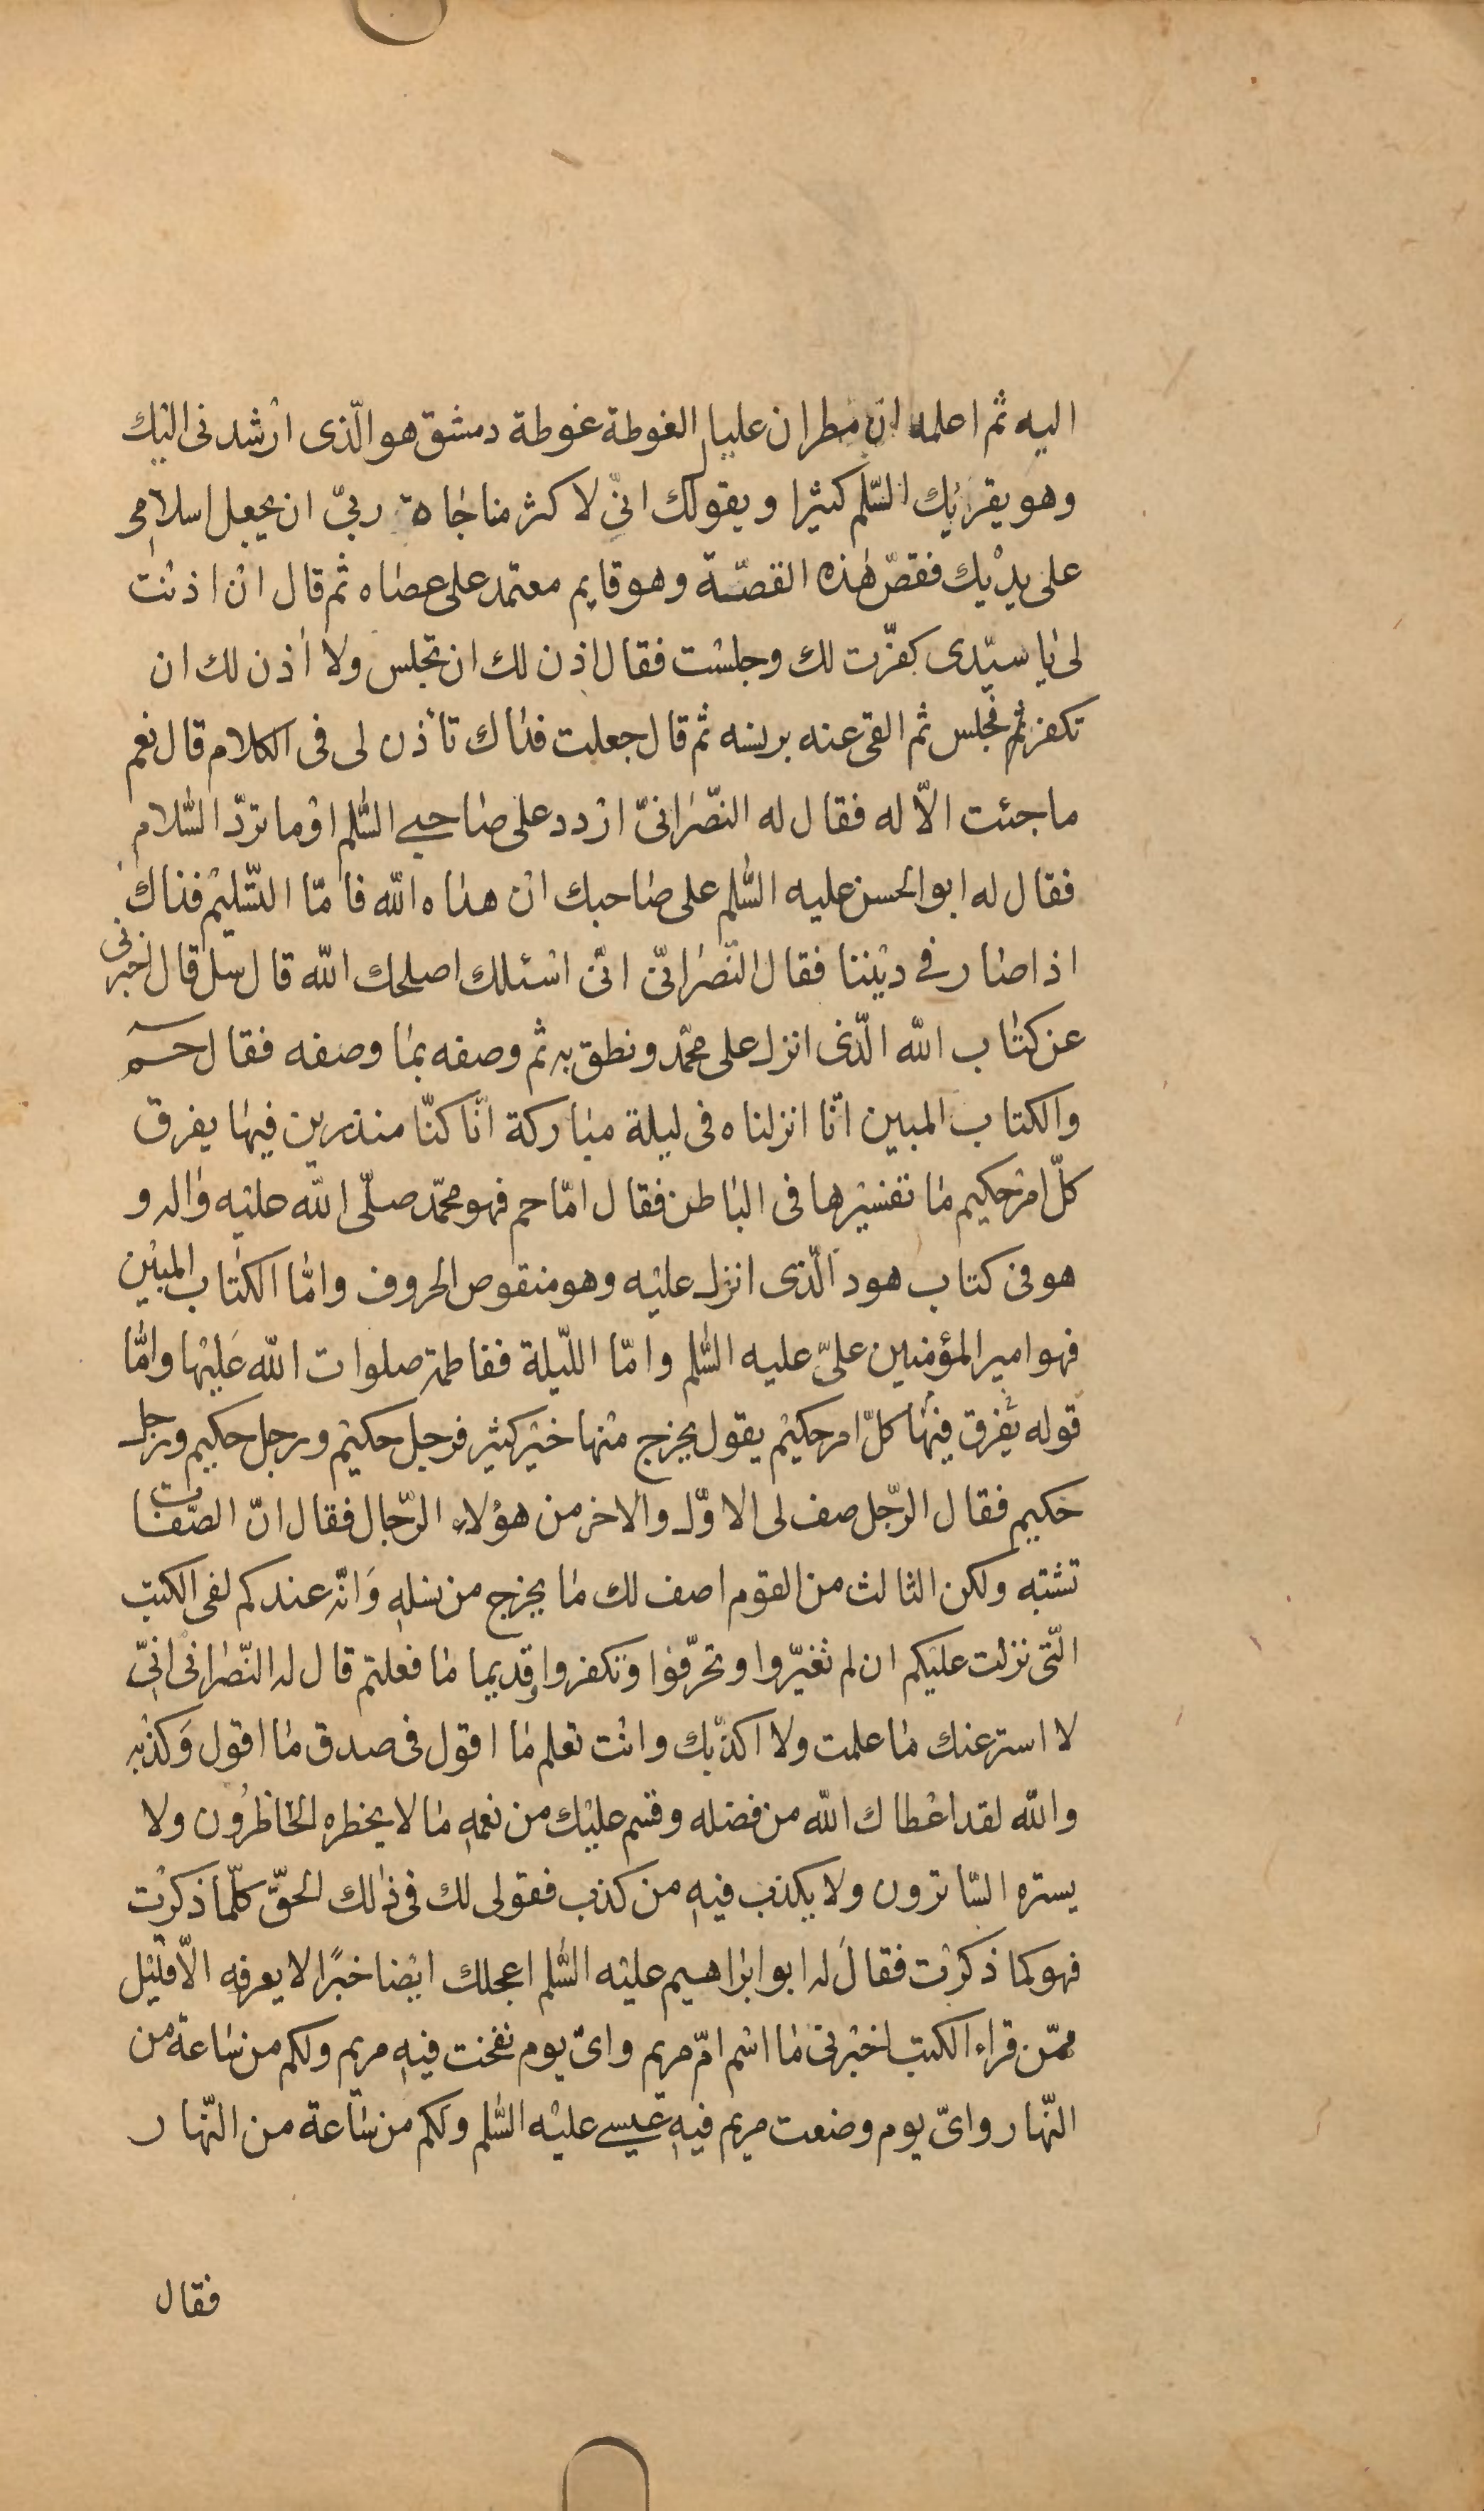 اليه ثم اعلمه ان مطران عليا الغوطة غوطة دمشق هو الّذى ارشدنى اليك
وهو يقرئك السّلم كثيرا ويقول لك انّى لاكثر مناجاة ربّى ان يجعل اسلامى
على يديك فقصّ هذه القصّة وهو قايم معتمد على عصاه ثم قال ان اذنت
لى يا سيّدى كفّرت لك وجلست فقال اذن لك ان تجلس ولا اذن لك ان
تكفر ثم فجلس ثم القى عنه برنسه ثم قال جعلت فداك تأذن لى فى الكلام قال نعم
ما جئت الّا له فقال له النّصرانىّ اردد على صاحبى السّلم او ما تردّ السّلام
فقال له ابو الحسن عليه السّلم على صاحبك ان هداه الله فامّا التّسليم فذاك
اذا صار فى ديننا فقال النّصرانىّ انّى اسئلك اصلحك الله قال سل قال اخبرنى
عن كتاب الله الّذى انزل على محمّد ونطق به ثم وصفه بما وصفه فقال حم
والكتاب المبين انّا انزلناه فى ليلة مباركة انّا كنّا منذرين فيها يفرق
كلّ امر حكيم ما تفسيرها فى الباطن فقال امّا حم فهو محمّد صلّى الله عليه واله و
هو فى كتاب هود الّذى انزل عليه وهو منقوص الحروف وامّا الكتاب المبين
فهو امير المؤمنين علىّ عليه السّلم وامّا اللّيلة ففاطمة صلوات الله عليها وامّا
قوله يفرق فيها كلّ امر حكيم يقول يخرج منها خير كثير فرجل حكيم ورجل حكيم ورجل
حكيم فقال الرّجل صف لى الاوّل والاخر من هؤلاء الرّجال فقال انّ الصّفات
تشتبه ولكن الثالث من القوم اصف لك ما يخرج من نسله وانّه عندكم لفى الكتب
الّتى نزلت عليكم ان لم تغيّروا وتحرّفوا وتكفروا وقديما ما فعلتم قال له النّصرانى انّى
لا استر عنك ما علمت ولا اكذّبك وانت تعلم ما اقول فى صدق ما اقول وكذبه
والله لقد اعطاك الله من فضله وقسم عليك من نعمه ما لا يخطره الخاطرون ولا
يستره السّاترون ولا يكذب فيه من كذب فقولى لك فى ذلك الحقّ كلّما ذكرت
فهو كما ذكرت فقال له ابو ابراهيم عليه السّلم اعجلك ايضا خبرًا لا يعرفه الّا قليل
ممّن قراء الكتب اخبرنى ما اسم امّ مريم واىّ يوم نفخت فيه مريم ولكم من ساعة من
النّهار واىّ يوم وضعت مريم فيه عيسى عليه السّلم ولكم من ساعة من النّهار
فقال